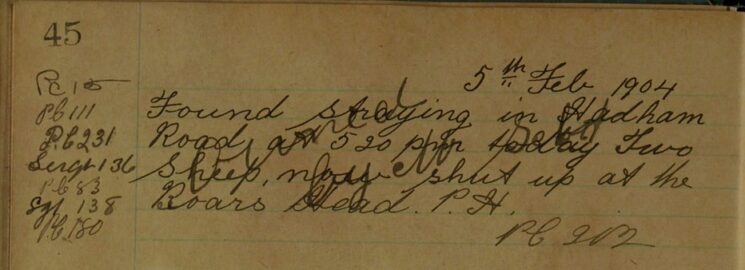 45
5th Feb 1904
PC 15
PC 111
PC 231
Sergt 136
PC 83
Sgt 138
PC 180
Found straying in Hadham
Road at 5 20 pm today Two
Sheep, now shut up at the
Boars Head. P. H.
PC 202